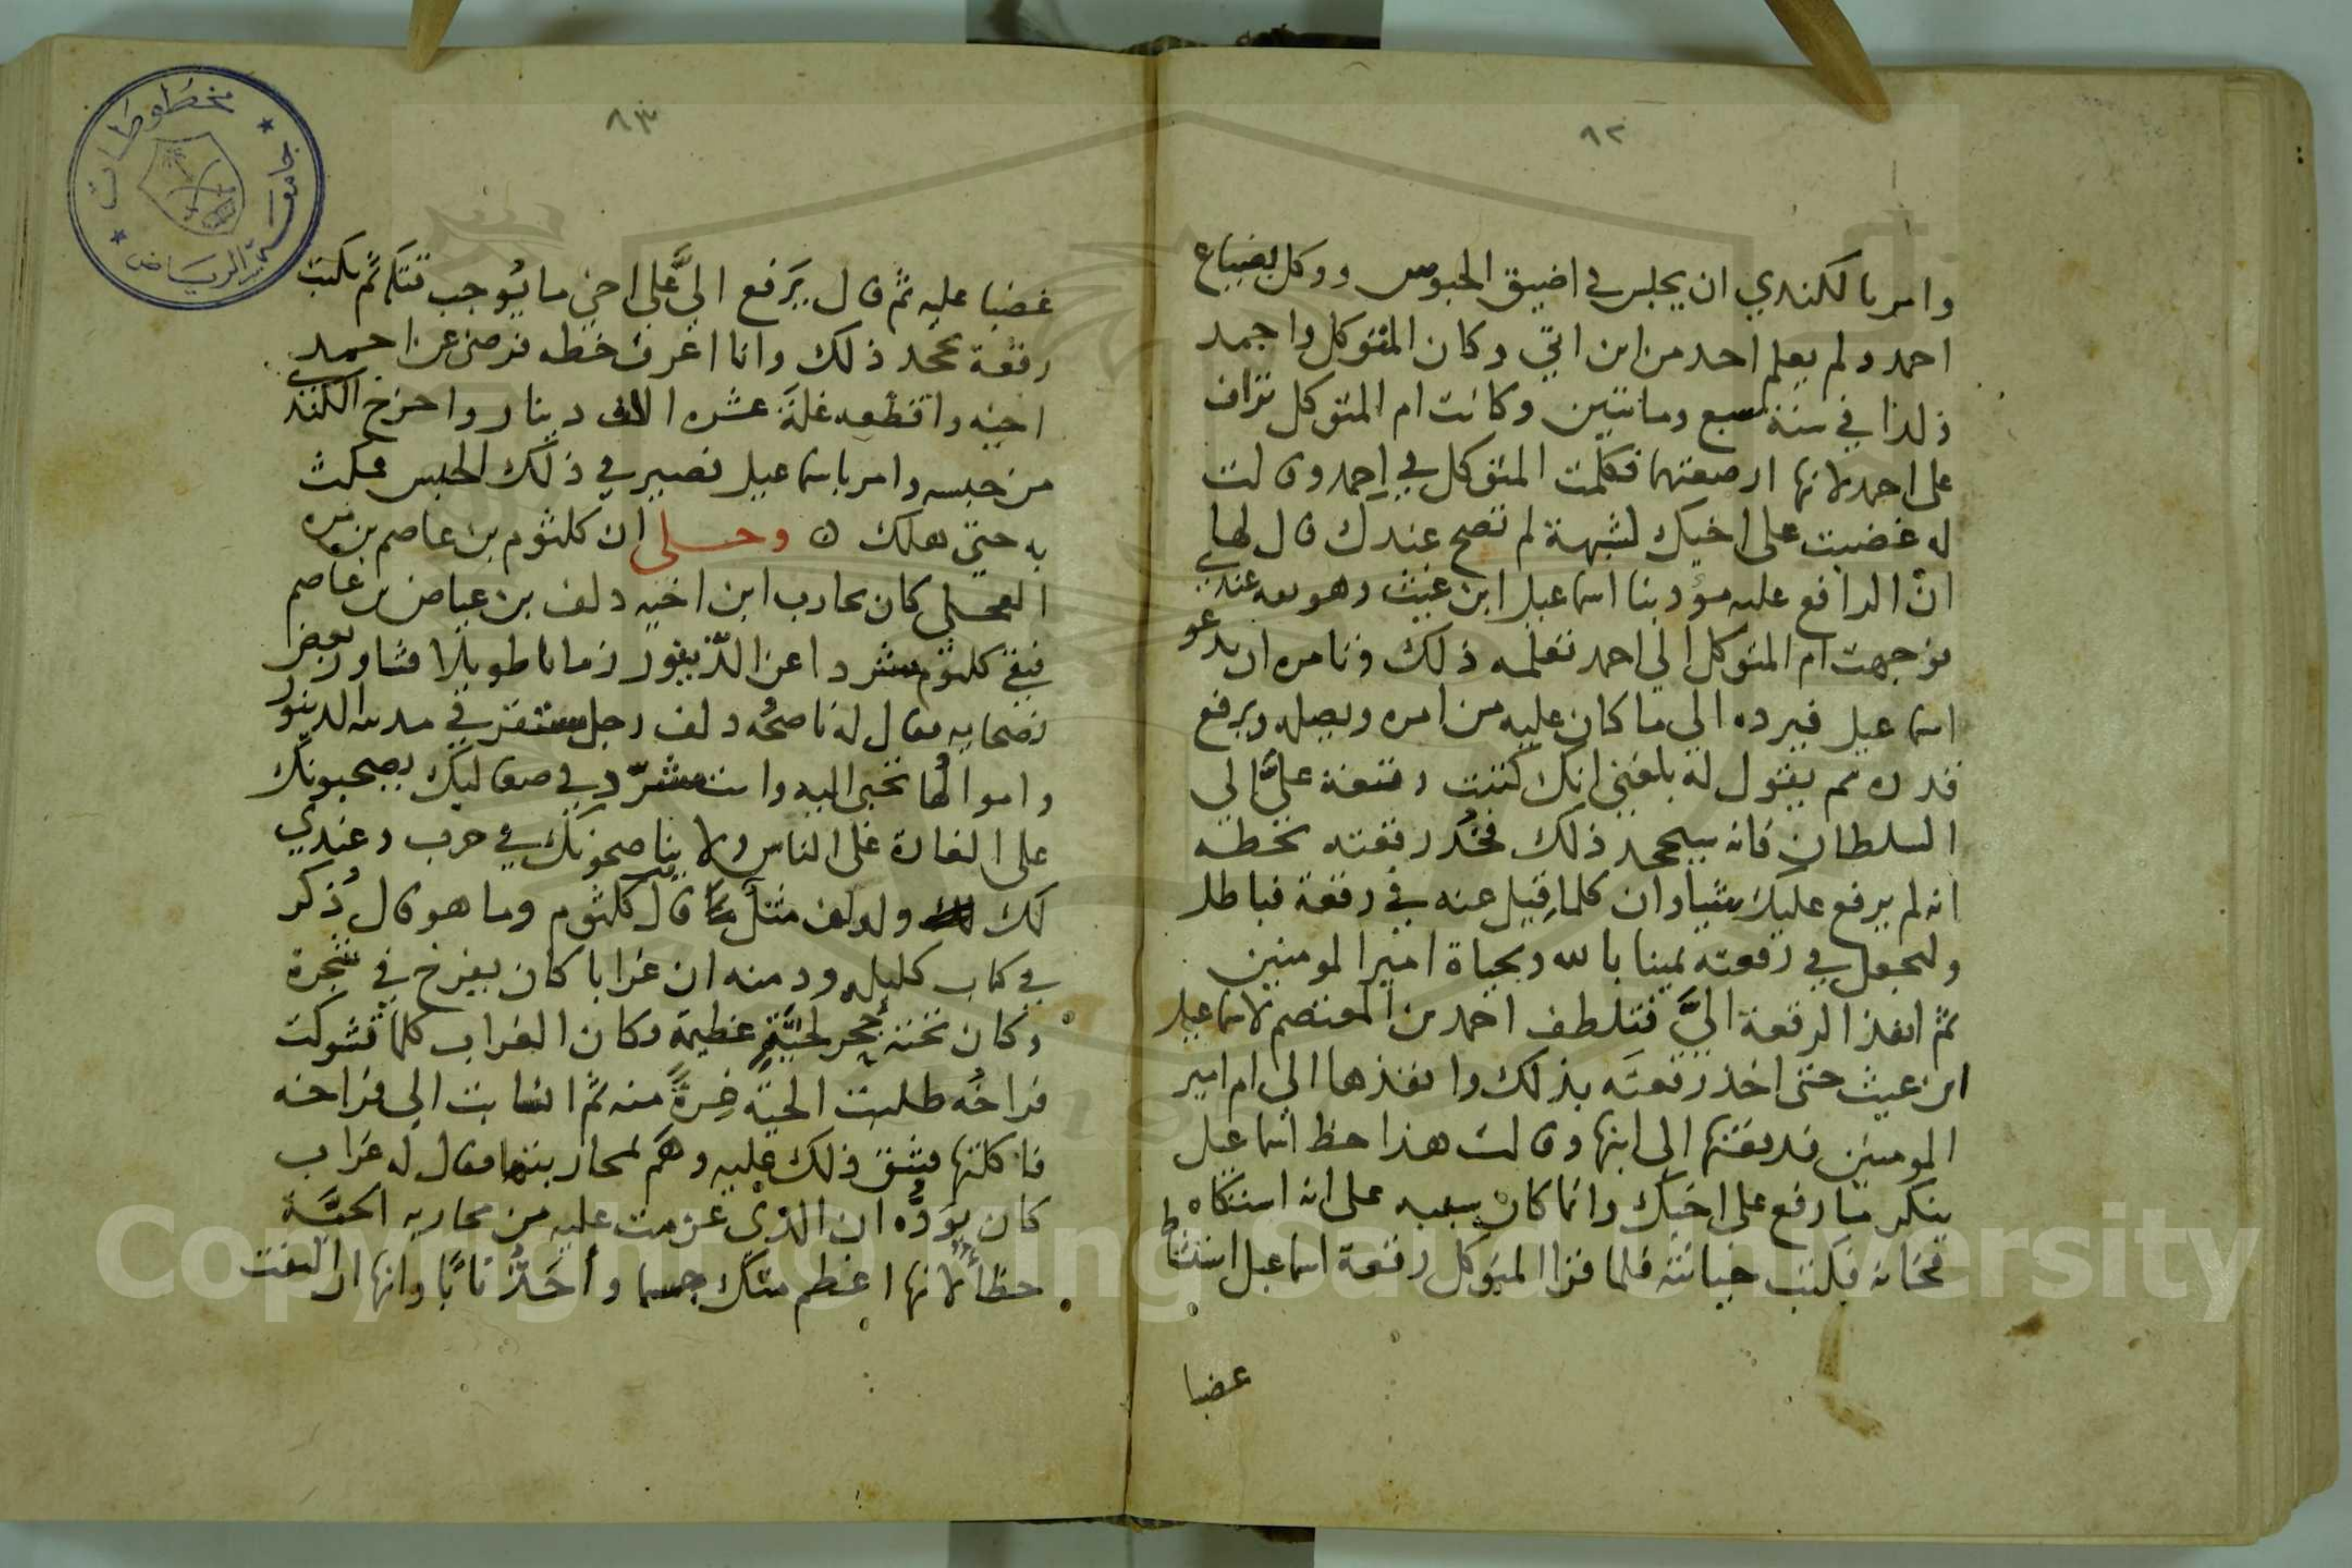 ٨٢
وامر بالكندي ان يحبس في اضيق الحبوس ووكل بضياع
احمد ولم يعلم احد من اين اتي وكان المتوكل واحمد
ولدا في سنة سبع ومائتين وكانت ام المتوكل تراف
على احمد لانها ارضعتهما فكلمت المتوكل في احمد وقالت
له غضبت على اخيك لشبهة لم تصح عندك قال لها بلي
ان الرافع عليه مؤدبنا اسماعيل ابن غيث وهو عنده
فوجهت ام المتوكل الي احمد تعلمه ذلك وتامره ان يدعو
اسماعيل فيرده الي ما كان عليه من امره ويصله ويرفع
قدره ثم يقول له بلغني انك كتبت رقعة عليَّ الي
السلطان فانه سيجحد ذلك فخُذ رقعته بخطه
انه لم يرفع عليك شيا وان كلما قيل عنه في رقعة فباطل
وليجعل في رقعته يمينا بالله وبحياة امير المومنين
ثمَّ انفذ الرقعة اليَّ فتلطف احمد بن المعتصم لاسماعيل
ابن غيث حتى اخذ رقعتَه بذلك وانفذها الي ام امير
المومنين فدفعتها الي ابنها وقالت هذا خط اسماعيل
ينكر ما رفع على اخيك وانما كان سببه على انه استكفاه
فخانه فكتب خيانته فلما قرا المتوكل رقعة اسماعيل استشاط
غضبا
٨٣
غضبا عليه ثم قال يَرفع اليَّ على اخي ما يُوجب قتله ثم يكتب
رقعة بجحد ذلك وانا اعرف خطه فرضي عن احمد
اخيه واقطعه غلةَ عشره الاف دينار واخرج الكندي
من حبسه وامر باسماعيل فصير في ذلك الحبس فمكث
به حتي هلك ه وحكى ان كلثوم بن عاصم بن مره
العجلي كان يحارب ابن اخيه دلف بن عياض بن عاصم
فبقي كلثوم مشردا عن الدّينور زمانا طويلا فشاور بعض
نصحايه فقال له ناصحُه دلف رجل مستقر في مدينه الدينور
واموالُها تجبى اليه وانت مشرّد في صعاليك يصحبونك
على الغارة على الناس ولا يناصحونك في حرب وعندي
لك ولدلف مثلٌ قال كلثوم وما هو قال ذُكر
في كتاب كليله ودمنه ان غرابا كان يفرخ في شجرة
وكان تحته جحر لحيّةٍ عظيمة وكان الغراب كلما شوكت
فراخُه طلبت الحية غِرةً منه ثمَّ انسابت الي فراخه
فاكلتها فشق ذلك عليه وهَم لمحاربتها فقال له غراب
كان يوَدُّه ان الذي عزمت عليه من محاربه الحيَّة
خطأ لانها اعظم منك جسما وأحَدُّ نابًا وانها ان التفت
مخطوطات
جامعة الرياض
Copyright © King Saud University